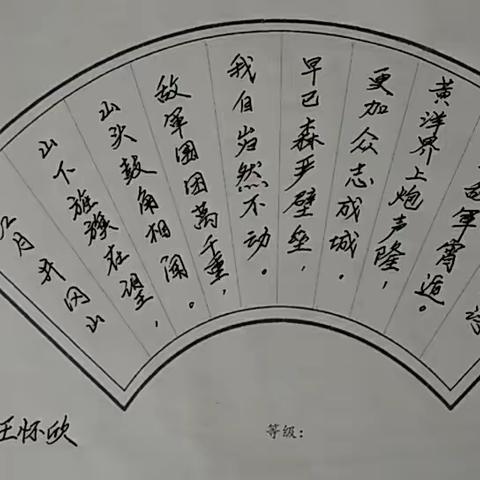 月井冈山
山下旌旗在望，
山头鼓角相闻。
敌军围困萬千重，
我自岿然不动。
早已森严壁垒，
更加众志成城。
黄洋界上炮声隆，
军宵遁。
王怀欣
等级：